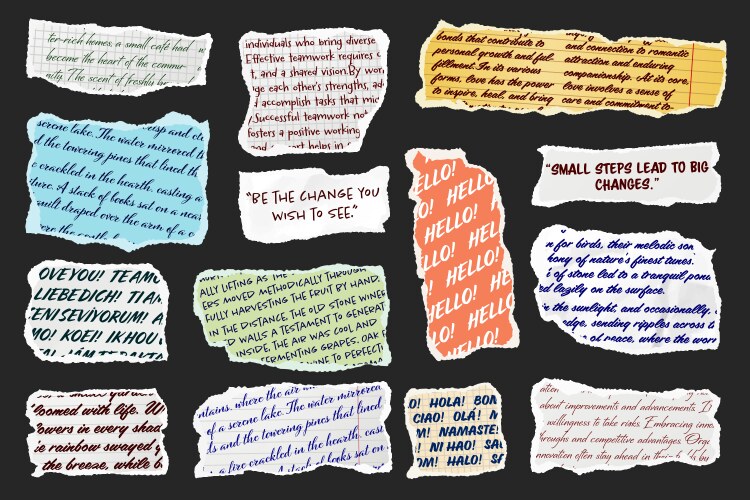 ter-rich homes, a small café had
become the heart of the commu-
nity. The scent of freshly br
individuals who bring diverse
Effective teamwork requires c
t, and a shared vision.By wor
ge each other's strengths, ad
d accomplish tasks that mig
Successful teamwork no
fosters a positive working
bonds that contribute to
personal growth and ful-
fillment. In its various
forms, love has the power
to inspire, heal, and bring
and connection to romantic
attraction and enduring
companionship. At its core,
love involves a sense of
care and commitment to
serene lake. The water mirrored t
d the towering pines that lined th
e crackled in the hearth, casting a
ture. A stack of books sat on a nea
quilt draped over the arm of a c
"BE THE CHANGE YOU
WISH TO SEE."
ELLO! HELLO!
O! HELLO!
HELLO! HELL
HELLO!
HELLO! HE
O! HELLO!
HELLO!
LO! HEL
"SMALL STEPS LEAD TO BIG
CHANGES."
n for birds, their melodic son
hony of nature's finest tunes.
of stone led to a tranquil pond
d lazily on the surface.
n the sunlight, and occasionally,
edge, sending ripples across t
at peace, where the wor
OVEYOU! TEAMO
LIEBEDICH! TIAM
ENISEVIYORUM! A
MO! KOEI! IKHOU
ALLY LIFTING AS THE
ERS MOVED METHODICALLY THROUGH
FULLY HARVESTING THE FRUIT BY HAND.
IN THE DISTANCE, THE OLD STONE WINE
D WALLS A TESTAMENT TO GENERAT
INSIDE, THE AIR WAS COOL AND
FERMENTING GRAPES, OAK
WINE TO PERFECT
loomed with life. W
owers in every shad
e rainbow swayed g
the breeze, while b
ntains, where the air
of a serene lake. The water mirrored
ds and the towering pines that lined
a fire crackled in the hearth, casti
A stack of books sat on
O! HOLA! BON
CIAO! OLÁ! N
M! NAMASTE!
! NI HAO! SA
OM! HALO! S
ation
about improvements and advancements. It
willingness to take risks. Embracing inno
throughs and competitive advantages. Orga
nnovation often stay ahead in